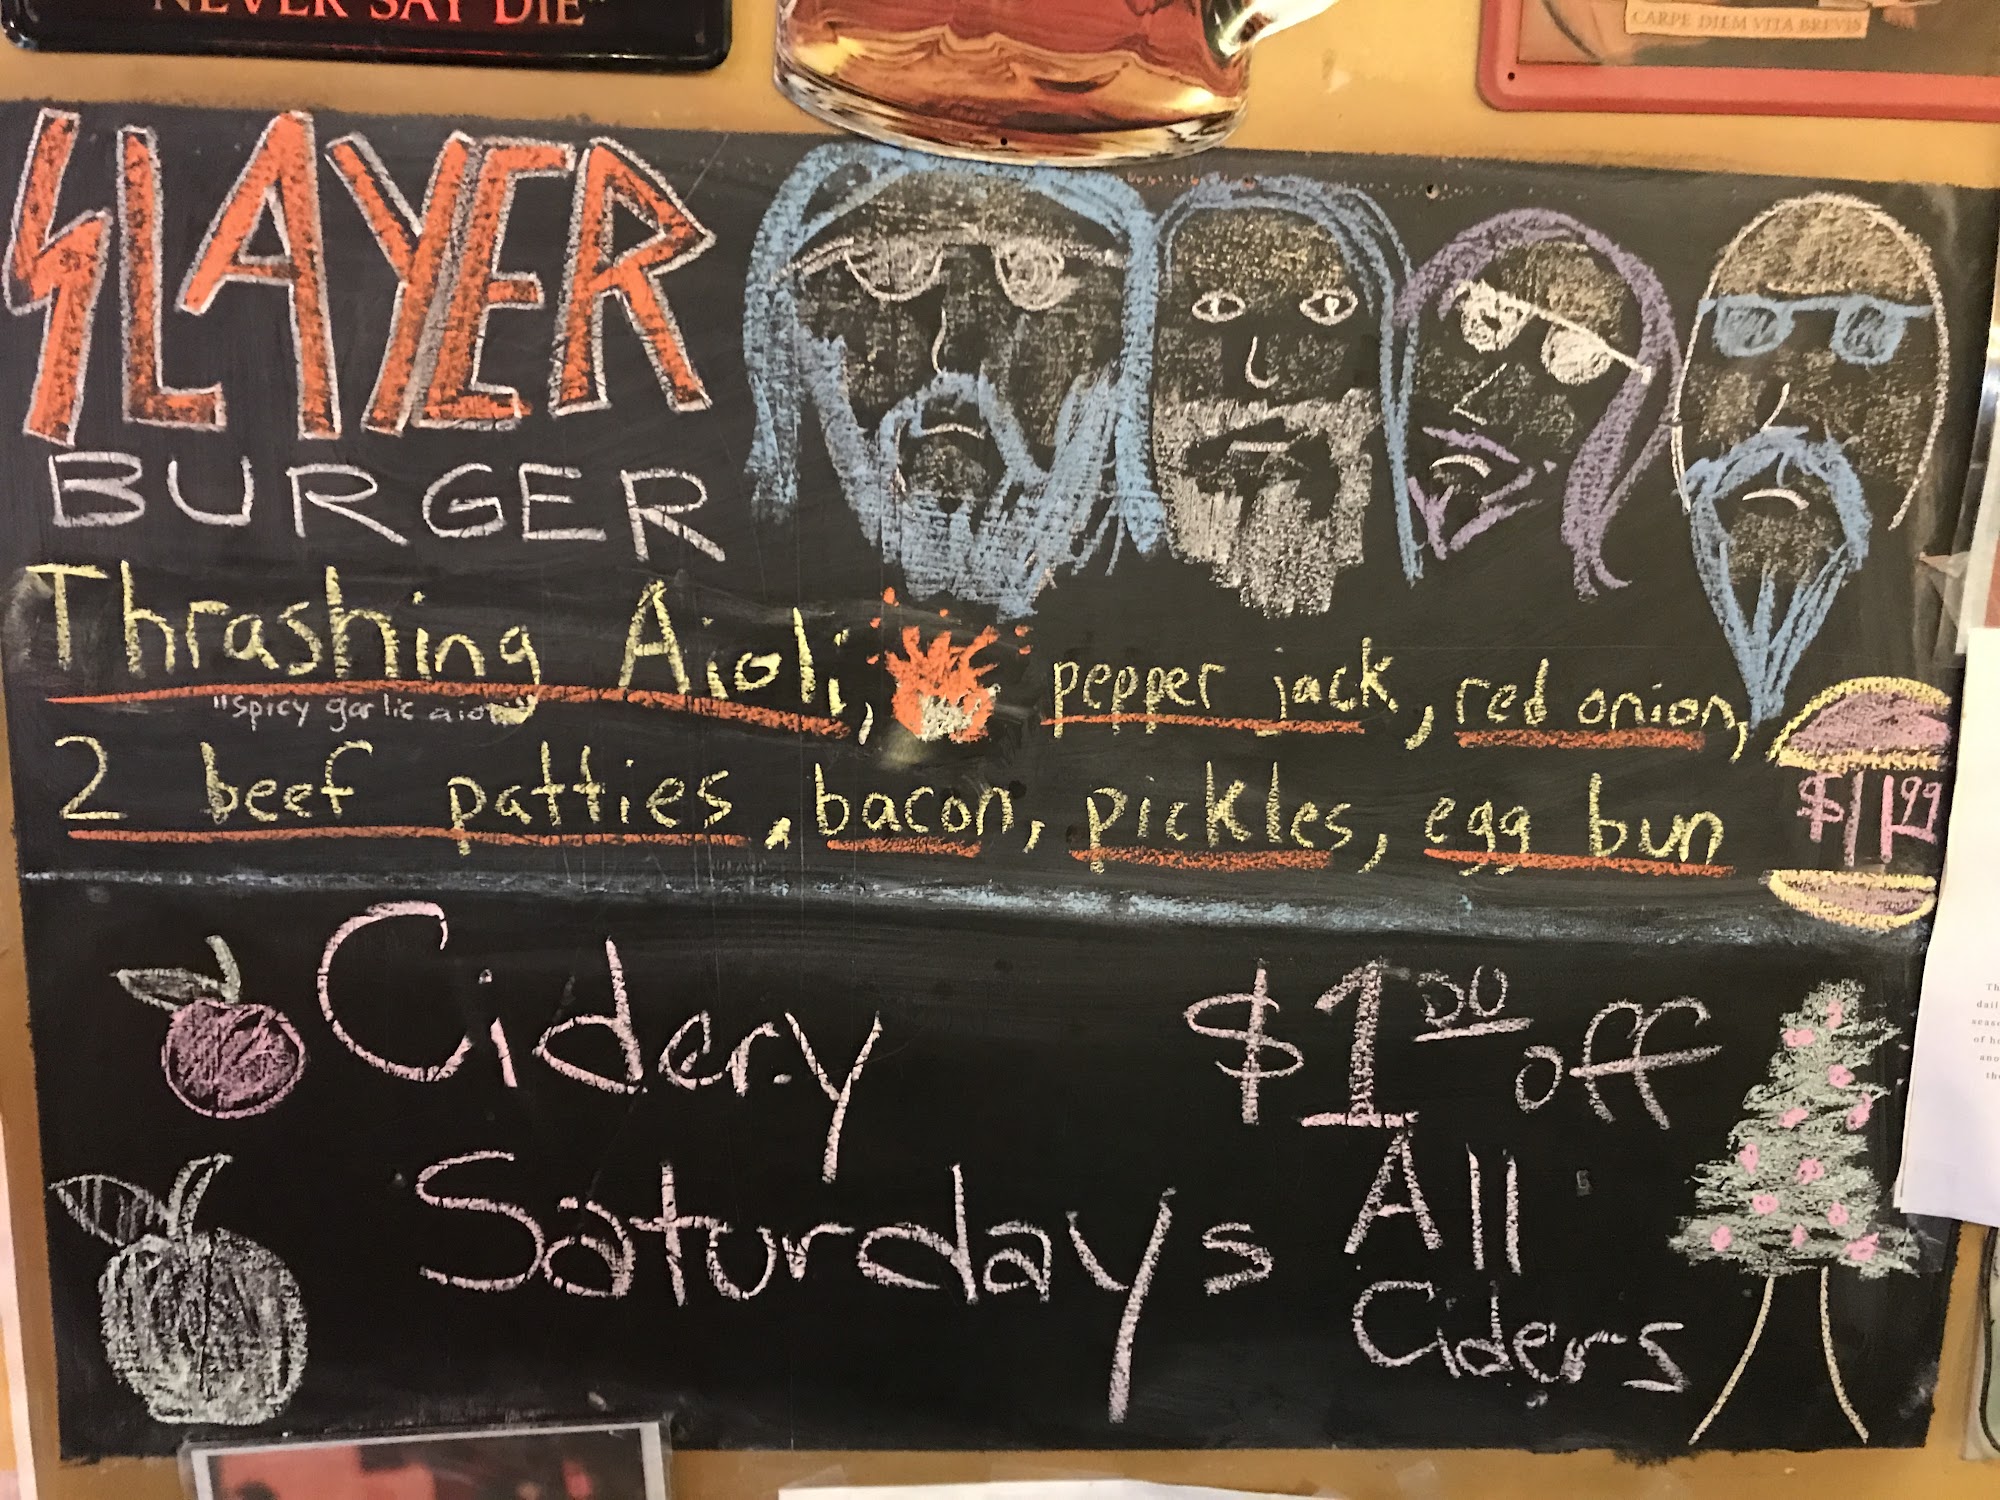 NEVER SAY DIE"
CARPE DIEM VITA BREVIS
SLAYER
BURGER
Thrashing Aioli, pepper jack, red onion,
"spicy garlic aioli"
2 beef patties, bacon, pickles, egg bun
$11.99
Cidery
Saturdays
$1.50 off
All
Ciders